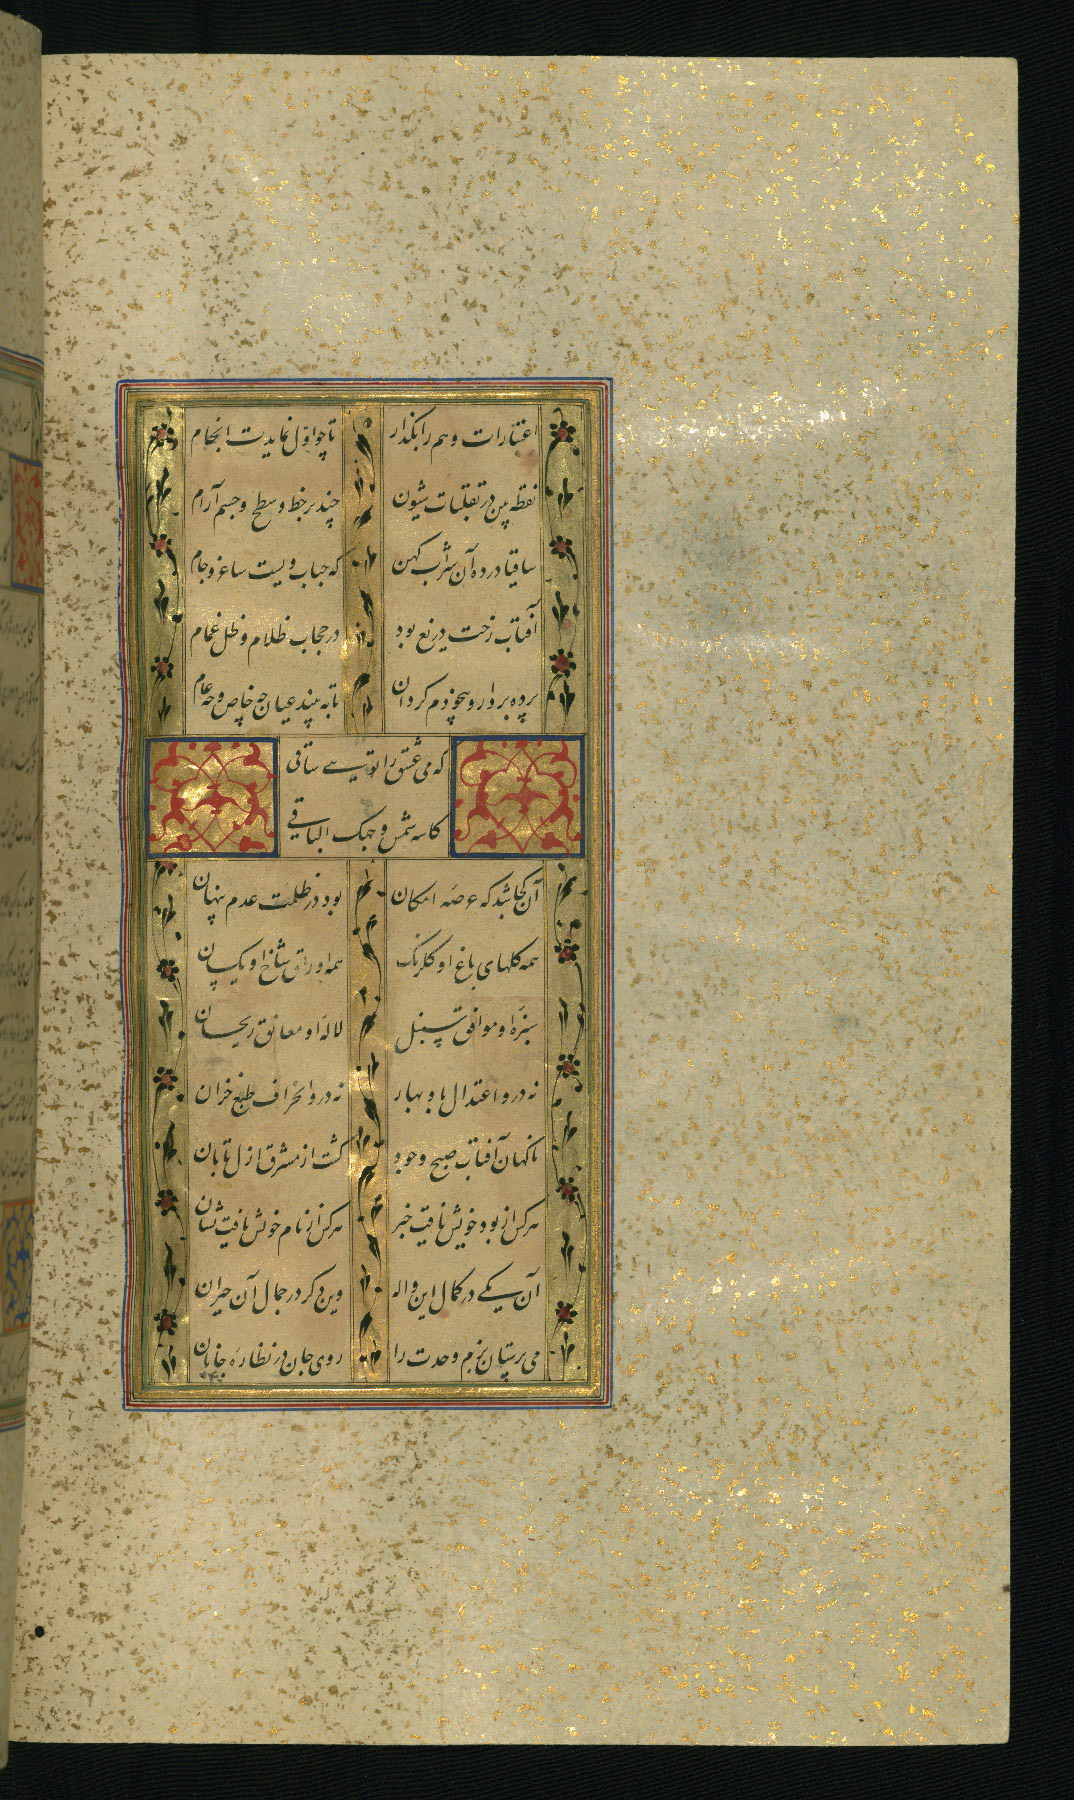 اعتبارات وهم را بگذار تا چو اول نمایدت انجام
نقطه بین در تقلبات شیون چند بر خط و سطح و جسم آرام
ساقیا در ده آن شراب کهن که حباب ویست ساغر و جام
آفتاب رخت دریغ بود در حجاب ظلام و ظل غمام
پرده بردار و بیخودم گردان تا به بیند عیان چه خاص و چه عام
که می عشق را تویی ساقی
کاسه شمس وجهک الباقی
آن کجا شد که عرصه امکان بود در ظلمت عدم پنهان
همه گلهای باغ او یکرنگ همه اوراق شاخ او یکسان
سبزه او موافق سنبل لاله او معانق ریحان
نه درو اعتدال باد بهار نه درو انحراف طبع خزان
ناگهان آفتاب صبح وجود گشت از مشرق ازل تابان
هر کس از بود خویش یافت خبر هر کس از نام خویش یافت نشان
آن یکی در کمال این واله وین دگر در جمال آن حیران
می پرستان بزم وحدت را روی جان در نظاره جانان